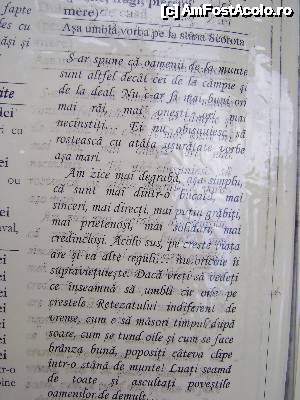 (c) AmFostAcolo.ro
fapte
mere) de casă
Așa umblă vorba pe la stâna Scorota
S-ar spune că oamenii de la munte
sunt altfel decât cei de la câmpie și
de la deal. Nu c-ar fi mai buni ori
mai răi, mai onești ori mai
necinstiți. Ei nu obișnuiesc să
rostească cu atâta ușurătate vorbe
așa mari.
Am zice mai degrabă, așa simplu,
că sunt mai dintr-o bucată, mai
sinceri, mai direcți, mai puțin grăbiți,
mai prietenoși, mai solidari, mai
credincioși. Acolo sus, pe creste viața
are și ea alte reguli... nu oricine îi
supraviețuiește. Dacă vreți să vedeți
ce înseamnă să umbli cu orele pe
crestele Retezatului indiferent de
vreme, cum e să măsori timpul după
soare, cum se tund oile și cum se face
brânza bună, poposiți câteva clipe
într-o stână de munte! Luați seamă
de toate și ascultați poveștile
oamenilor de demult...